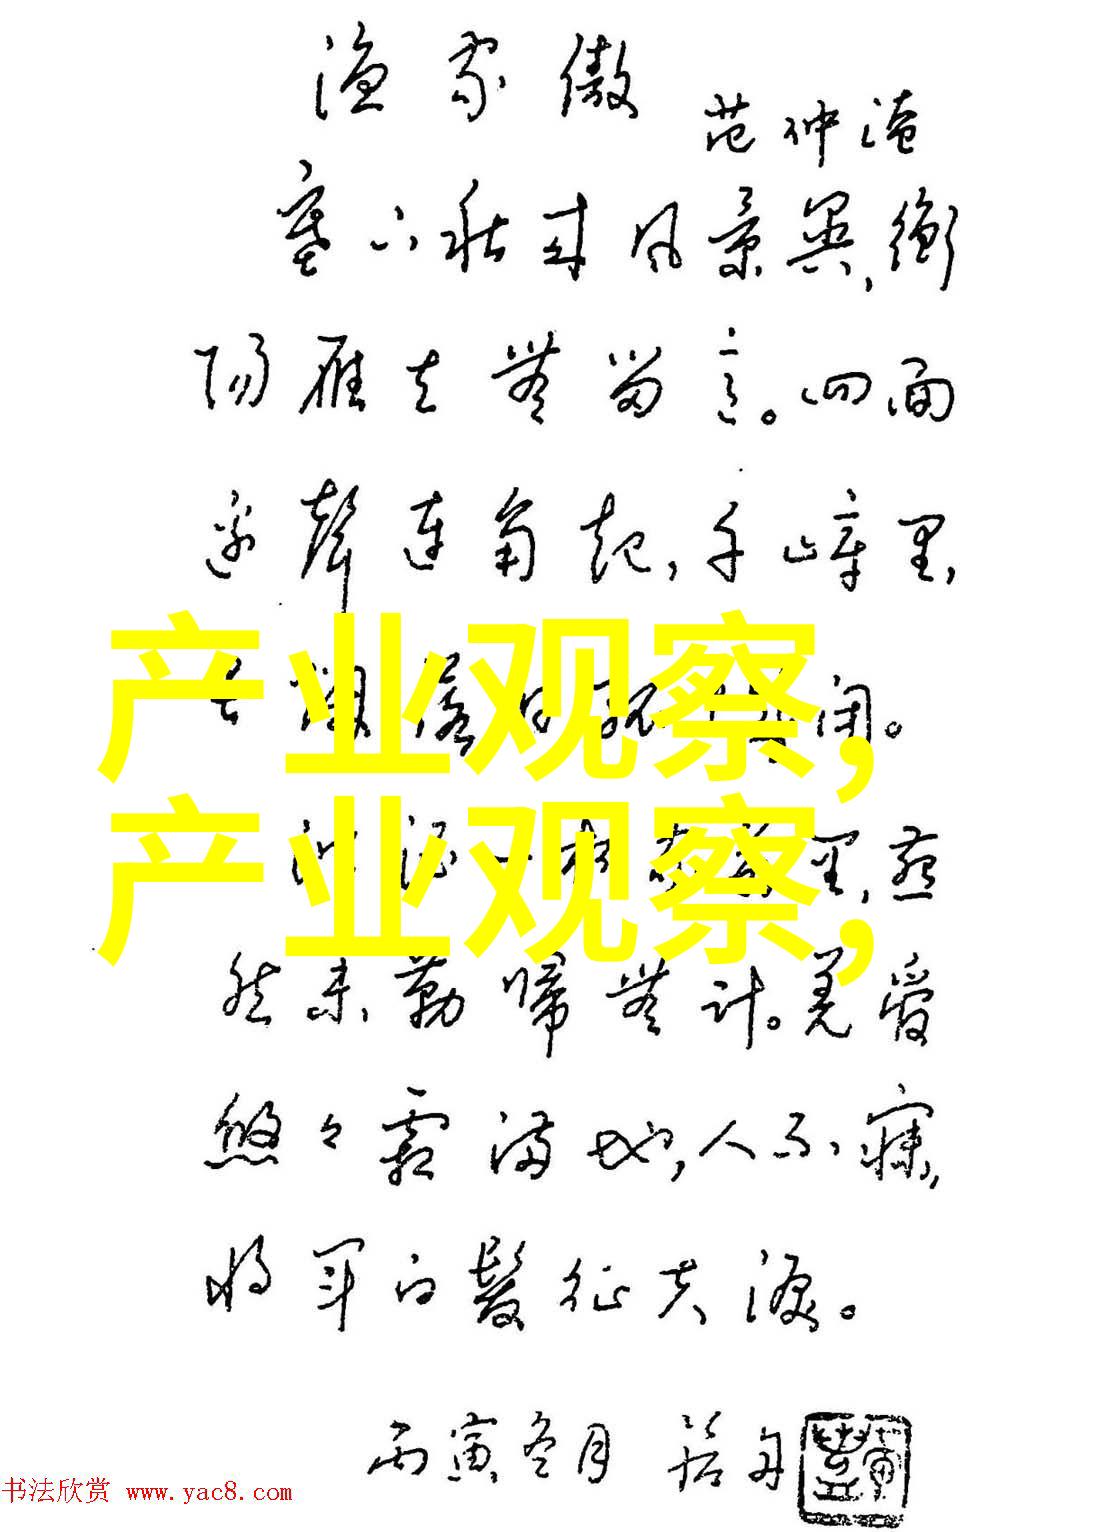 渔家傲
范仲淹
塞下秋来风景异,衡
阳雁去无留意。四面
边声连角起,千嶂里,
长烟落日孤城闭。
产业观察,
浊酒一杯家万里,燕
产业观察,
然未勒归无计。羌管
悠々霜满地,人不寐,
将军白发征夫泪。
丙寅冬月
书法欣赏 www.yac8.com